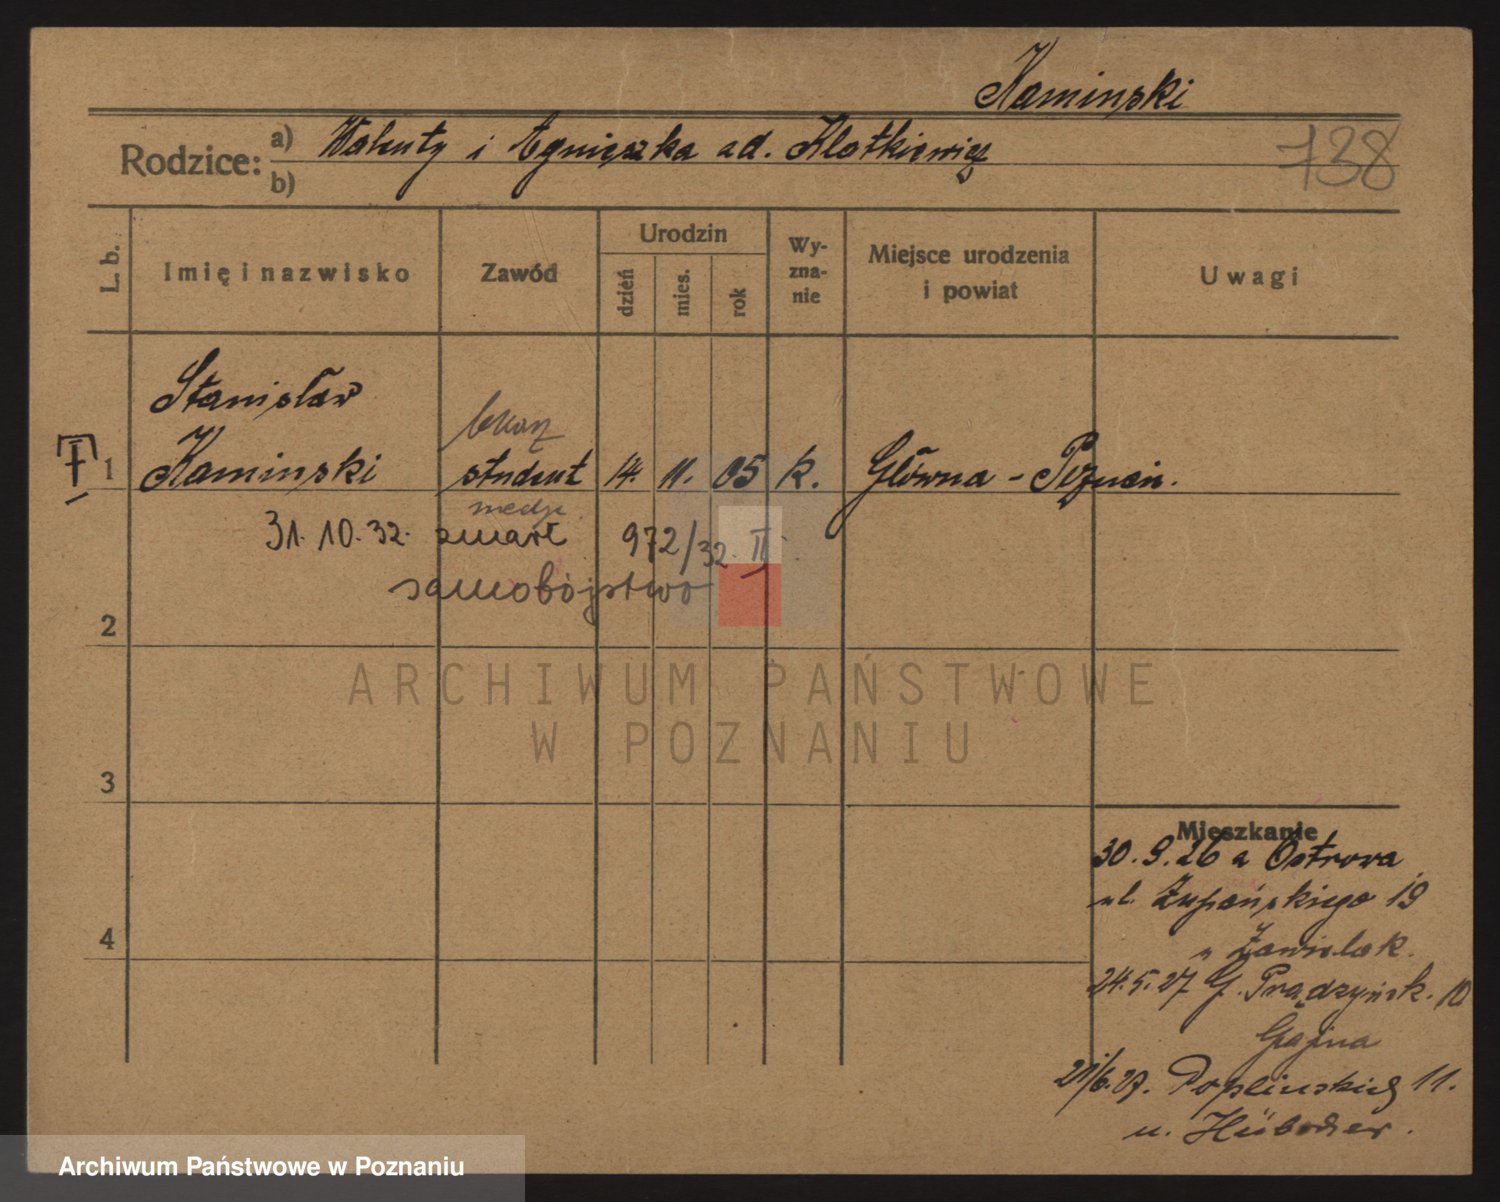 Kaminski
Rodzice: a) Walenty i Agnieszka ad. Klatkiewicz
b)
738
L. b.
Imię i nazwisko
Zawód
Urodzin
dzień
mies.
rok
Wy-
zna-
nie
Miejsce urodzenia
i powiat
Uwagi
Stanisław
lekarz
1 Kaminski student 14. 11. 05 k. Główna - Poznań.
medyc.
31. 10. 32. zmarł 972/32. II
samobójstwo
2
3
4
Mieszkanie
30. 9. 26 a Ostrowa
ul. Zupańskiego 19
u Zawielak.
24. 5. 27 G. Prądzyńsk. 10
Gajina
21/6. 27. Poplinskich 11.
u.
ARCHIWUM PAŃSTWOWE
W POZNANIU
Archiwum Państwowe w Poznaniu